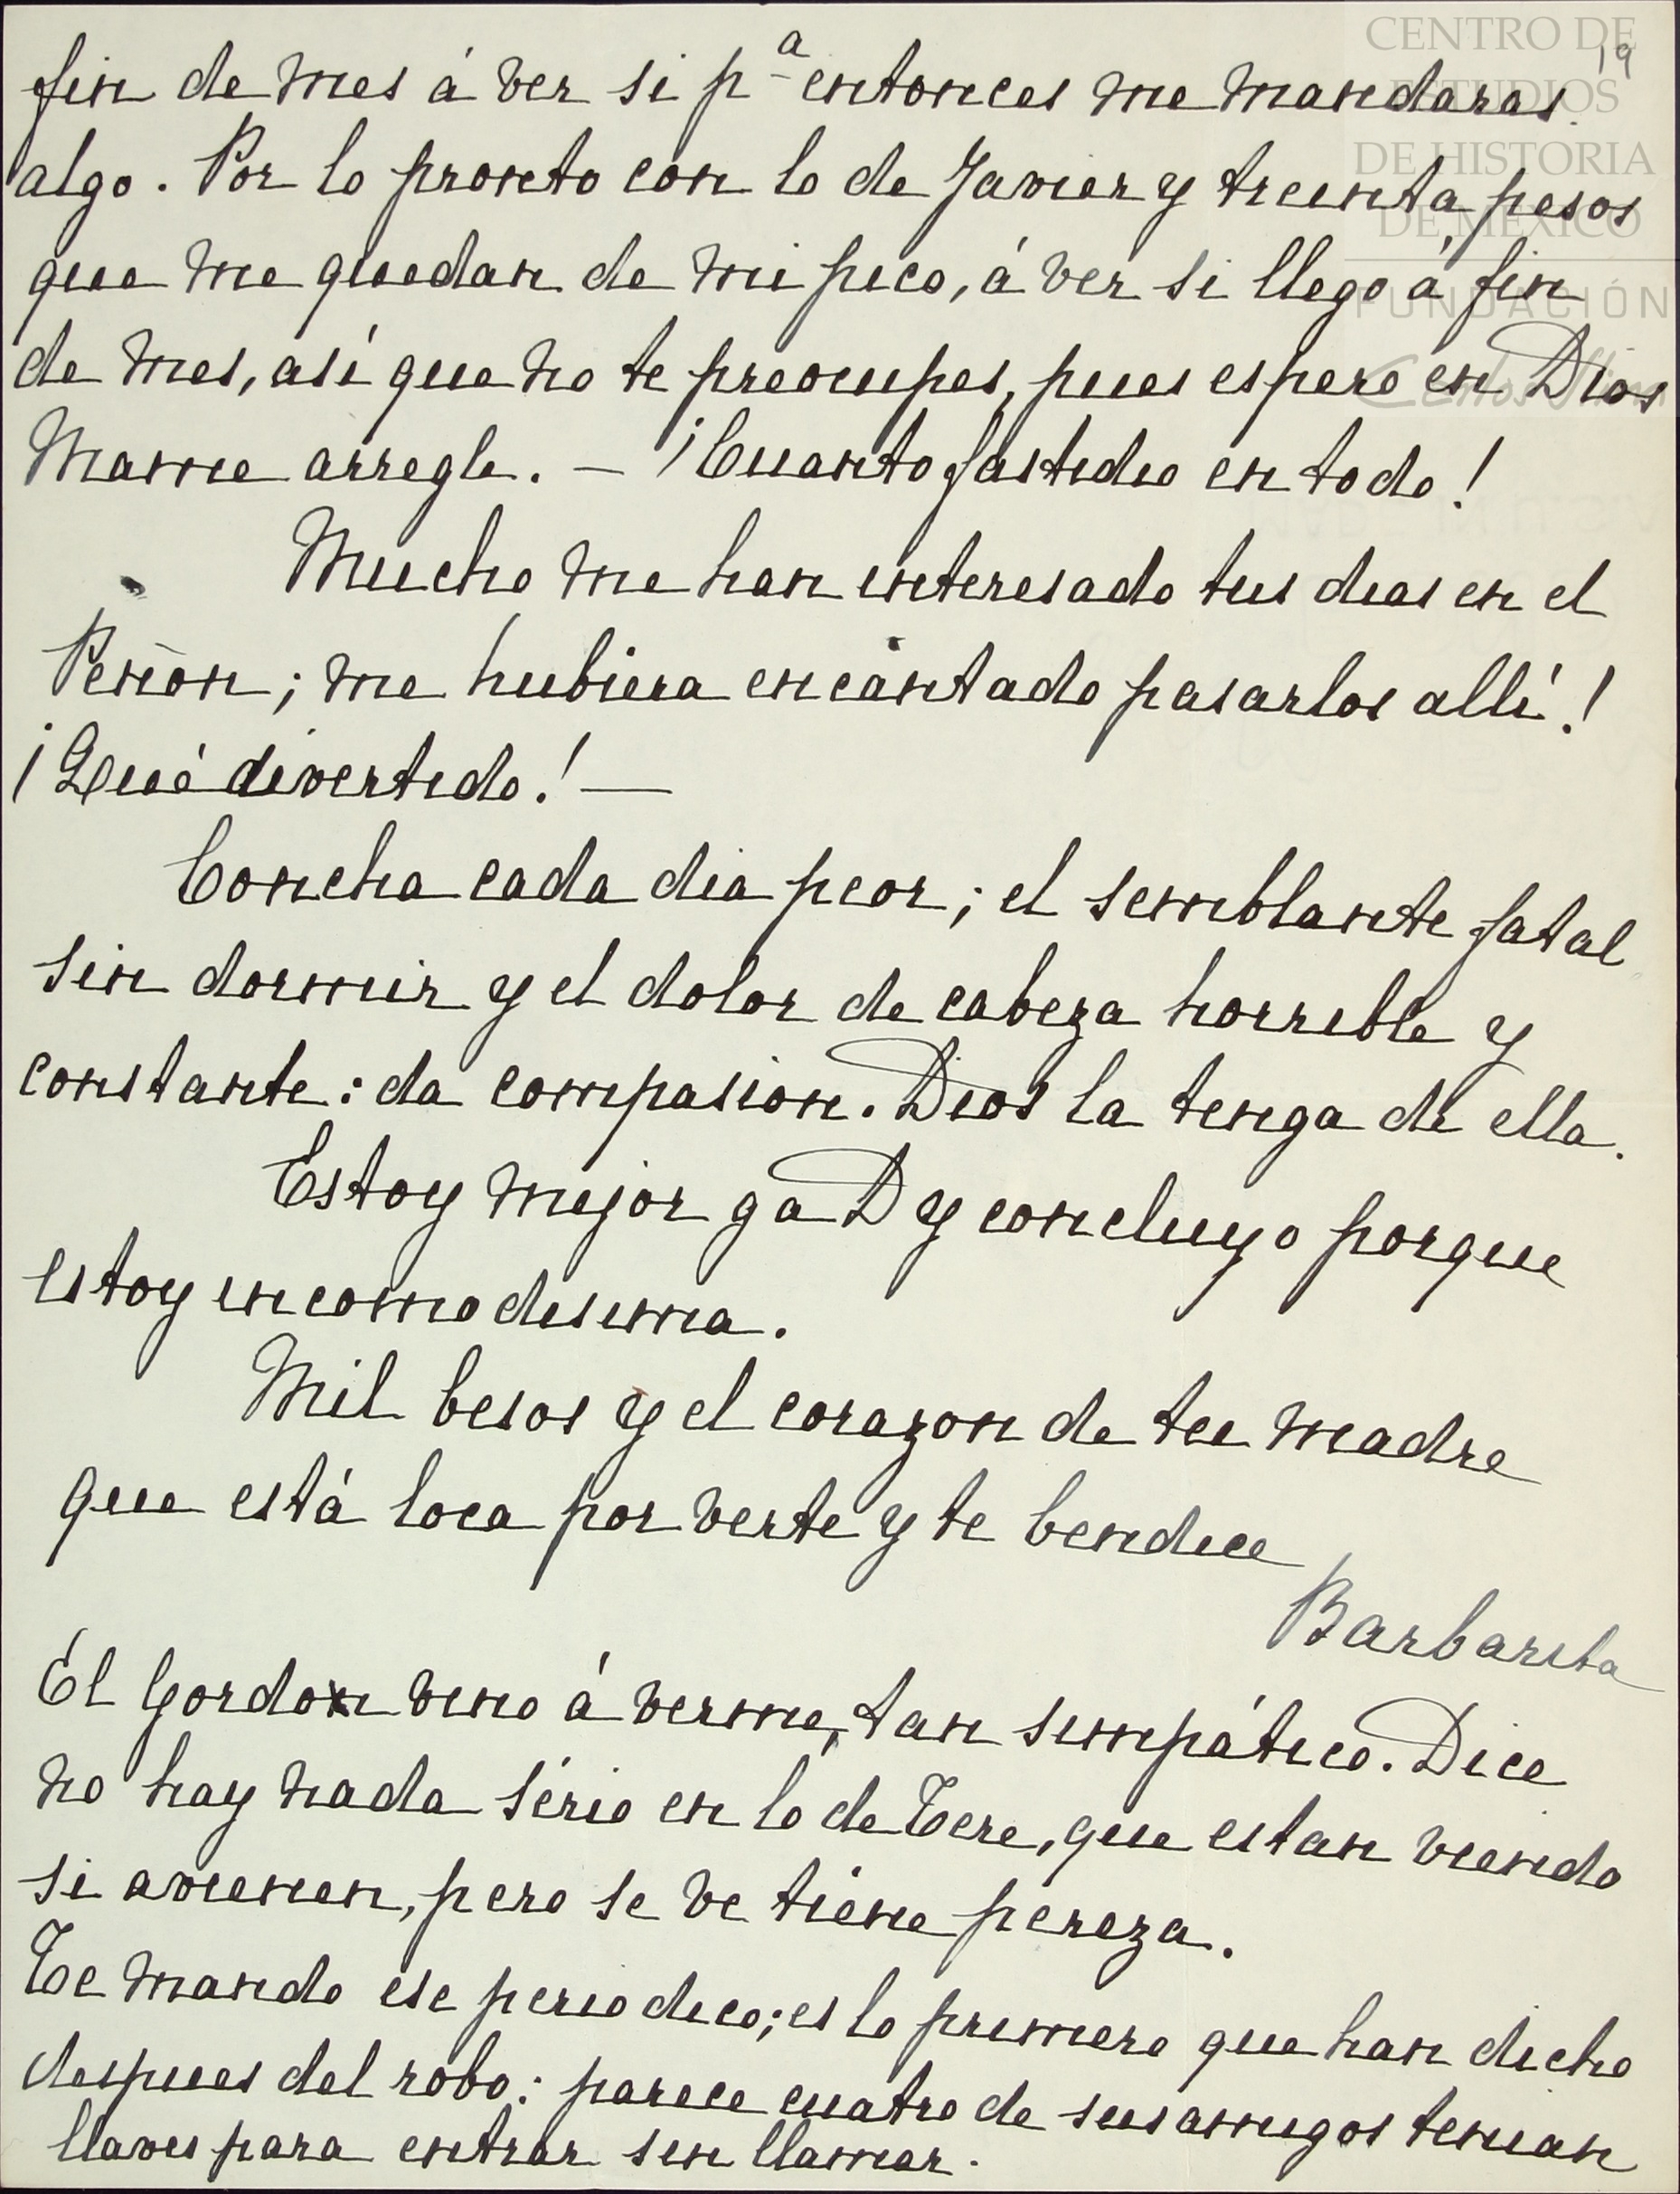 CENTRO DE
ESTUDIOS
DE HISTORIA
DE MÉXICO
FUNDACIÓN
Carlos Slim
19
fin de mes á ver si pª entonces me mandaras
algo. Por lo pronto con lo de Javier y treinta pesos
que me quedan de mi pico, á ver si llego á fin
de mes, así que no te preocupes, pues espero en Dios
Mamie arregle. — ¡Cuanto fastidio en todo!
Mucho me han interesado tus dias en el
Peñon; me hubiera encantado pasarlos allí!
¡Qué divertido! —
Concha cada dia peor; el semblante fatal
sin dormir y el dolor de cabeza horrible y
constante: da compasion. Dios la tenga de ella.
Estoy mejor g a D y concluyo porque
estoy incomodisima.
Mil besos y el corazon de tu madre
que está loca por verte y te bendice
Barbarita
El Gordon vino á verme, tan simpático. Dice
no hay nada sério en lo de Tere, que estan viendo
si avienen, pero se ve tiene pereza.
Te mando ese periodico; es lo primero que han dicho
despues del robo: parece cuatro de sus amigos tenian
llaves para entrar sin llamar.